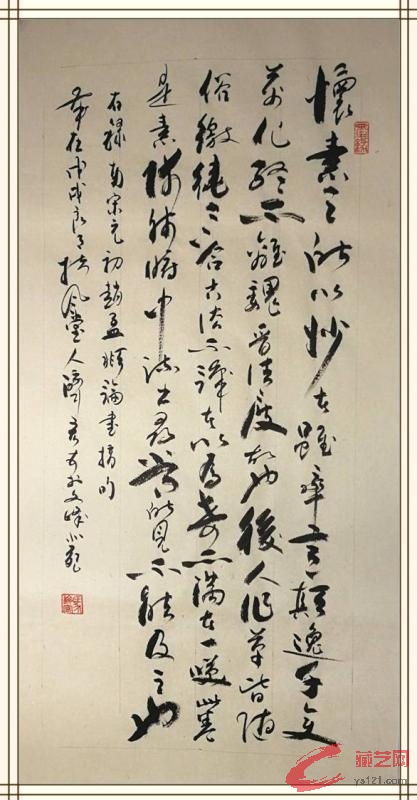 懷素之所以妙者雖率意顛逸千變
萬化終不離魏晉法度故也後人作草皆随
俗繳繞不合古法不識者以為奇不滿者一此卷
是素師肺腑中流出尋常所見不能及之也
右録南宋元初趙孟頫論書摘句
歲在戊戌良月扶風堂人濟於文峰小苑
藏艺网
ys121.com